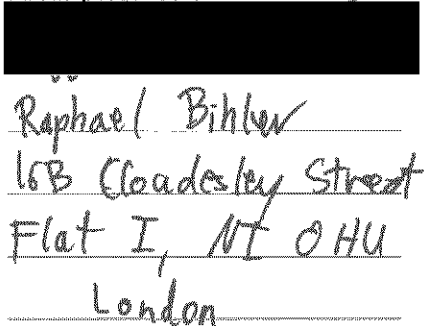 Raphael Bihler
16B Cloadesley Street
Flat I, N1 0HU
London